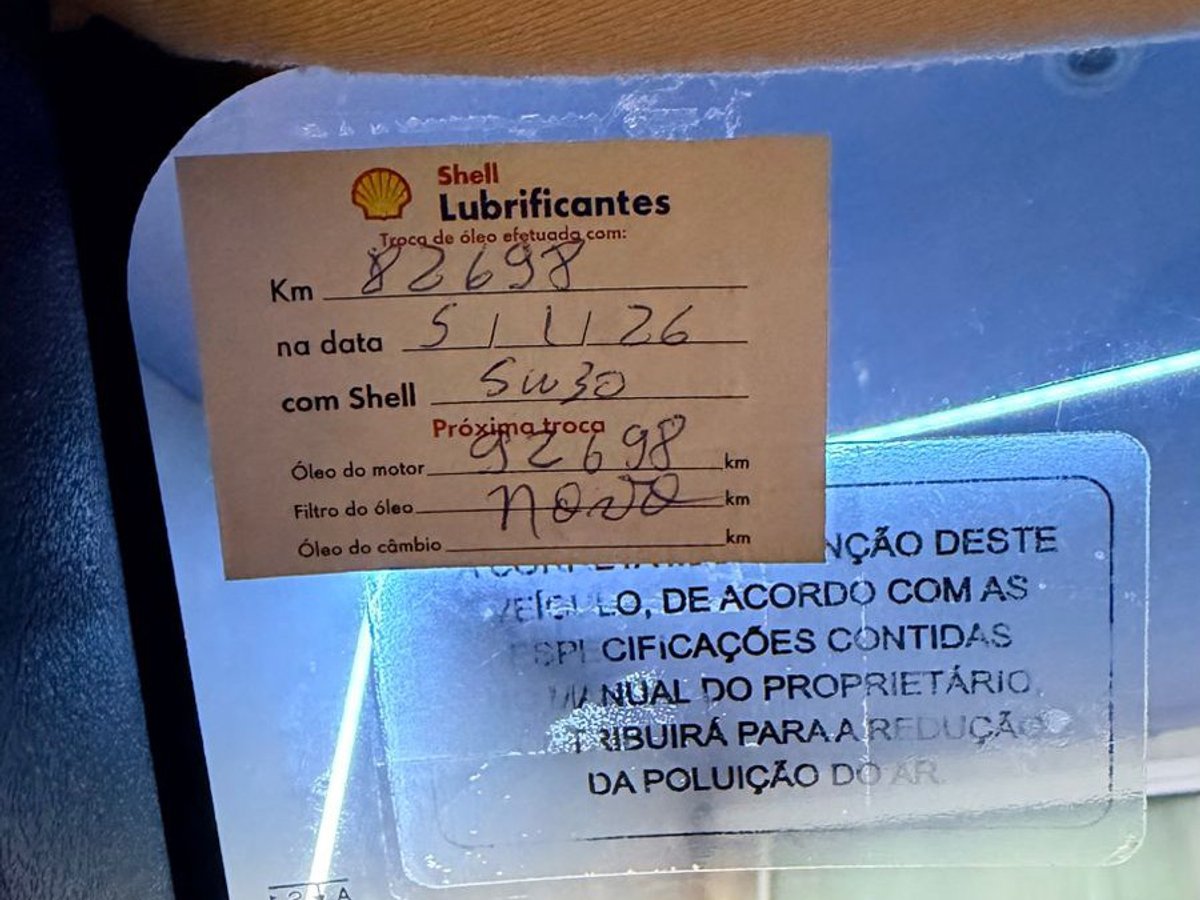 Shell
Lubrificantes
Troca de óleo efetuada com:
Km 82698
na data 5/1/26
com Shell 5W30
Próxima troca
Óleo do motor 92698 km
Filtro do óleo novo km
Óleo do câmbio km
NÇÃO DESTE
VEÍCULO, DE ACORDO COM AS
ESPECIFICAÇÕES CONTIDAS
MANUAL DO PROPRIETÁRIO,
TRIBUIRÁ PARA A REDUÇÃO
DA POLUIÇÃO DO AR.